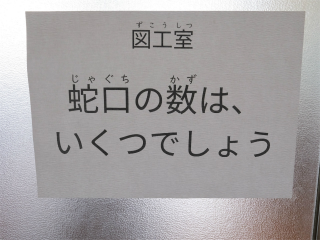 ずこうしつ
図工室
じゃぐち かず
蛇口の数は、
いくつでしょう